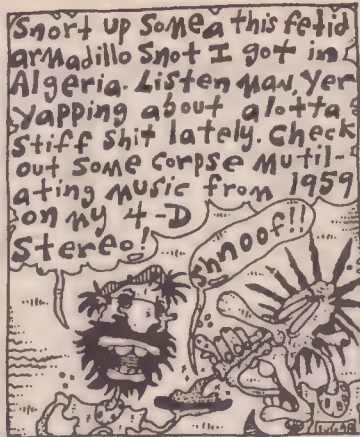 Snort up Somea this fetid
armadillo Snot I got in
Algeria. Listen Man, Yer
Yapping about alotta
Stiff Shit lately. Check
out some corpse mutil-
ating music from 1959
on my 4-D
Stereo!
Shnoof!!